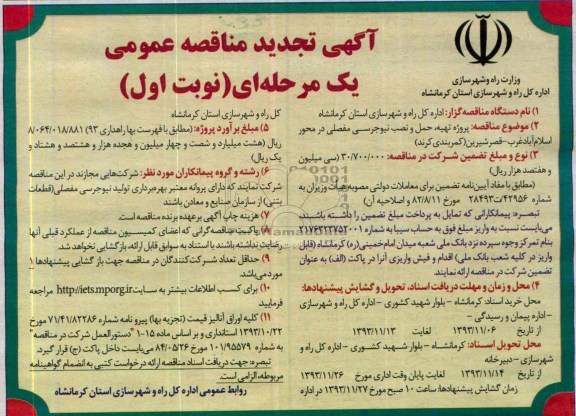 آگهی تجدید مناقصه عمومی
یک مرحله‌ای (نوبت اول)
وزارت راه وشهرسازی
اداره کل راه و شهرسازی استان کرمانشاه
۱) نام دستگاه مناقصه‌گزار: اداره کل راه و شهرسازی استان کرمانشاه
۲) موضوع مناقصه: پروژه تهیه حمل و نصب نیوجرسی مفصلی در محور
اسلام‌آبادغرب-قصرشیرین (کمربندی کرند)
۳) نوع و مبلغ تضمین شرکت در مناقصه: ۳۰/۷۰۰/۰۰۰ (سی میلیون
و هفتصد هزار ریال)
(مطابق با مفاد آیین‌نامه تضمین برای معاملات دولتی مصوبه هیأت وزیران به
شماره ۴۲۹۵۶ت۲۸۴۹۳ مورخ ۸۲/۸/۱۱ و اصلاحیه آن)
تبصره: پیمانکارانی که تمایل به پرداخت مبلغ تضمین را داشته باشند،
می‌بایست نسبت به واریز مبلغ فوق به حساب سیبا به شماره ۲۱۷۶۴۵۲۷۵۲۰۰۱
بنام تمرکز وجوه سپرده نزد بانک ملی شعبه میدان امام‌خمینی(ره) کرمانشاه (قابل
واریز در کلیه شعب بانک ملی) اقدام و فیش واریزی آنرا در پاکت (الف) به عنوان
تضمین شرکت در مناقصه ارائه نمایند.
۴) محل و زمان و مهلت دریافت اسناد، تحویل و گشایش پیشنهادها:
محل خرید اسناد: کرمانشاه - بلوار شهید کشوری - اداره کل راه و شهرسازی
- اداره پیمان و رسیدگی -
از تاریخ ۱۳۹۳/۱۱/۰۶ لغایت ۱۳۹۳/۱۱/۱۳
محل تحویل اسناد: کرمانشاه - بلوار شهید کشوری - اداره کل راه و
شهرسازی - دبیرخانه
از تاریخ ۱۳۹۳/۱۱/۱۴ لغایت پایان وقت اداری مورخ ۱۳۹۳/۱۱/۲۶
زمان گشایش پیشنهادها: ساعت ۱۰ صبح مورخ ۱۳۹۳/۱۱/۲۷ در اداره
کل راه و شهرسازی استان کرمانشاه
۵) مبلغ برآورد پروژه: (مطابق با فهرست بها راهداری ۹۳) ۸/۰۶۴/۰۱۸/۸۸۱
ریال (هشت میلیارد و شصت و چهار میلیون و هجده هزار و هشتصد و هشتاد و
یک ریال)
۶) رشته و گروه پیمانکاران مورد نظر: شرکت‌هایی مجازند در این مناقصه
شرکت نمایند که دارای پروانه معتبر بهره‌برداری تولید نیوجرسی مفصلی (قطعات
بتنی) از سازمان صنایع و معادن باشند
۷) هزینه چاپ آگهی برعهده برنده مناقصه است.
۸) پاکیت مناقصه‌گرانی که اعضای کمیسیون مناقصه از عملکرد قبلی آنها
رضایت نداشته باشند با استناد به سوابق قابل ارائه، بازگشایی نخواهد شد.
۹) حداقل تعداد شرکت‌کنندگان در مناقصه جهت باز گشایی پیشنهادها ۱
مورد می‌باشد
۱۰) برای کسب اطلاعات بیشتر به سایت http://iets.mporg.ir مراجعه
فرمایید
۱۱) کلیه اوراق آنالیز قیمت (تجزیه بها) پیرو نامه شماره ۷۱/۴۱/۸۲۲۸۶ مورخ
۱۳۹۳/۱۰/۲۲ استانداری و بر اساس ماده ۱۵-۱ "دستورالعمل شرکت در مناقصه"
به شماره ۱۰۱/۹۵۵۷۹ مورخ ۸۴/۰۵/۲۶ می‌بایست داخل پاکت (ج) قرار گیرد.
تبصره: جهت دریافت اسناد مناقصه ارائه درخواست کتبی به انضمام گواهینامه
مربوطه، الزامی است.
روابط عمومی اداره کل راه و شهرسازی استان کرمانشاه